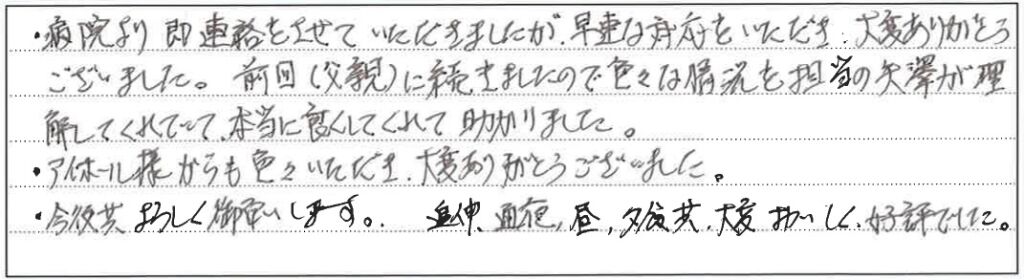 ・病院より即連絡をさせていただきましたが、早速な対応をいただき、大変ありがとう
ございました。前回(父親)に続きましたので色々な情況を担当の矢澤が理
解してくれていて、本当に良くしてくれて助かりました。
・アイホール様からも色々いただき、大変ありがとうございました。
・今後共よろしく御願いします。追伸、通夜、昼、夕食共、大変おいしく、好評でした。